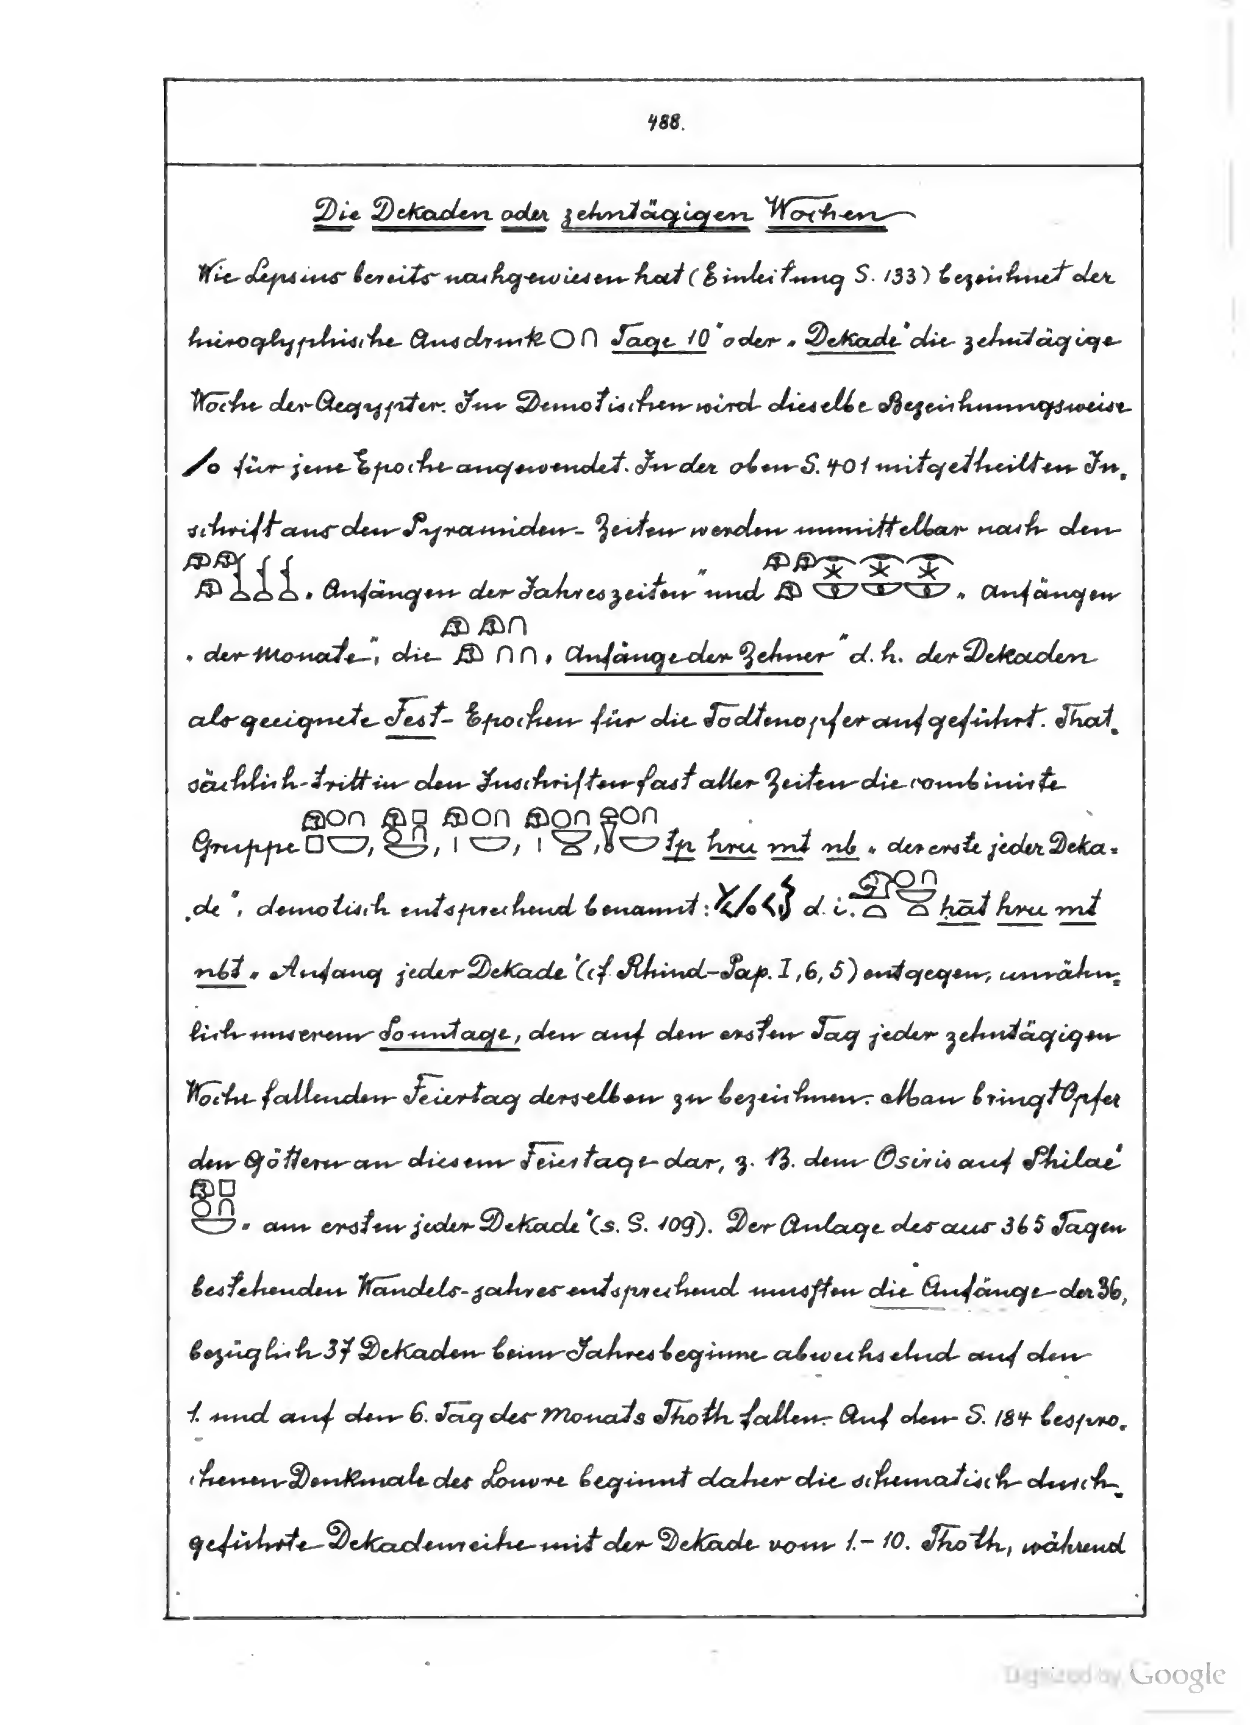 488.
Die Dekaden oder zehntägigen Wochen
Wie Lepsius bereits nachgewiesen hat (Einleitung S. 133) bezeichnet der
hieroglyphische Ausdruck Tage 10" oder „Dekade" die zehntägige
Woche der Aegypter. Im Demotischen wird dieselbe Bezeichnungsweise
für jene Epoche angewendet. In der oben S. 401 mitgetheilten In-
schrift aus den Pyramiden-Zeiten werden unmittelbar nach den
„Anfängen der Jahreszeiten" und „Anfängen
„der Monate", die „Anfänge der Zehner" d. h. der Dekaden
als geeignete Fest-Epochen für die Todtenopfer aufgeführt. That-
sächlich tritt in den Inschriften fast aller Zeiten die combinirte
Gruppe , , , , tp hru mt nb „der erste jeder Deka-
„de", demotisch entsprechend benannt: d. i. ḥāt hru mt
nbt „Anfang jeder Dekade" (cf. Rhind-Pap. I, 6, 5) entgegen, um ähn-
lich unserem Sonntage, den auf den ersten Tag jeder zehntägigen
Woche fallenden Feiertag derselben zu bezeichnen. Man bringt Opfer
den Göttern an diesem Feiertage dar, z. B. dem Osiris auf Philae
„am ersten jeder Dekade" (s. S. 109). Der Anlage des aus 365 Tagen
bestehenden Wandels-jahres entsprechend mussten die Anfänge der 36,
bezüglich 37 Dekaden beim Jahresbeginne abwechselnd auf den
1. und auf den 6. Tag des Monats Thoth fallen. Auf dem S. 184 bespro-
chenen Denkmale des Louvre beginnt daher die schematisch durch-
geführte Dekadenreihe mit der Dekade vom 1.-10. Thoth, während
Digitized by Google